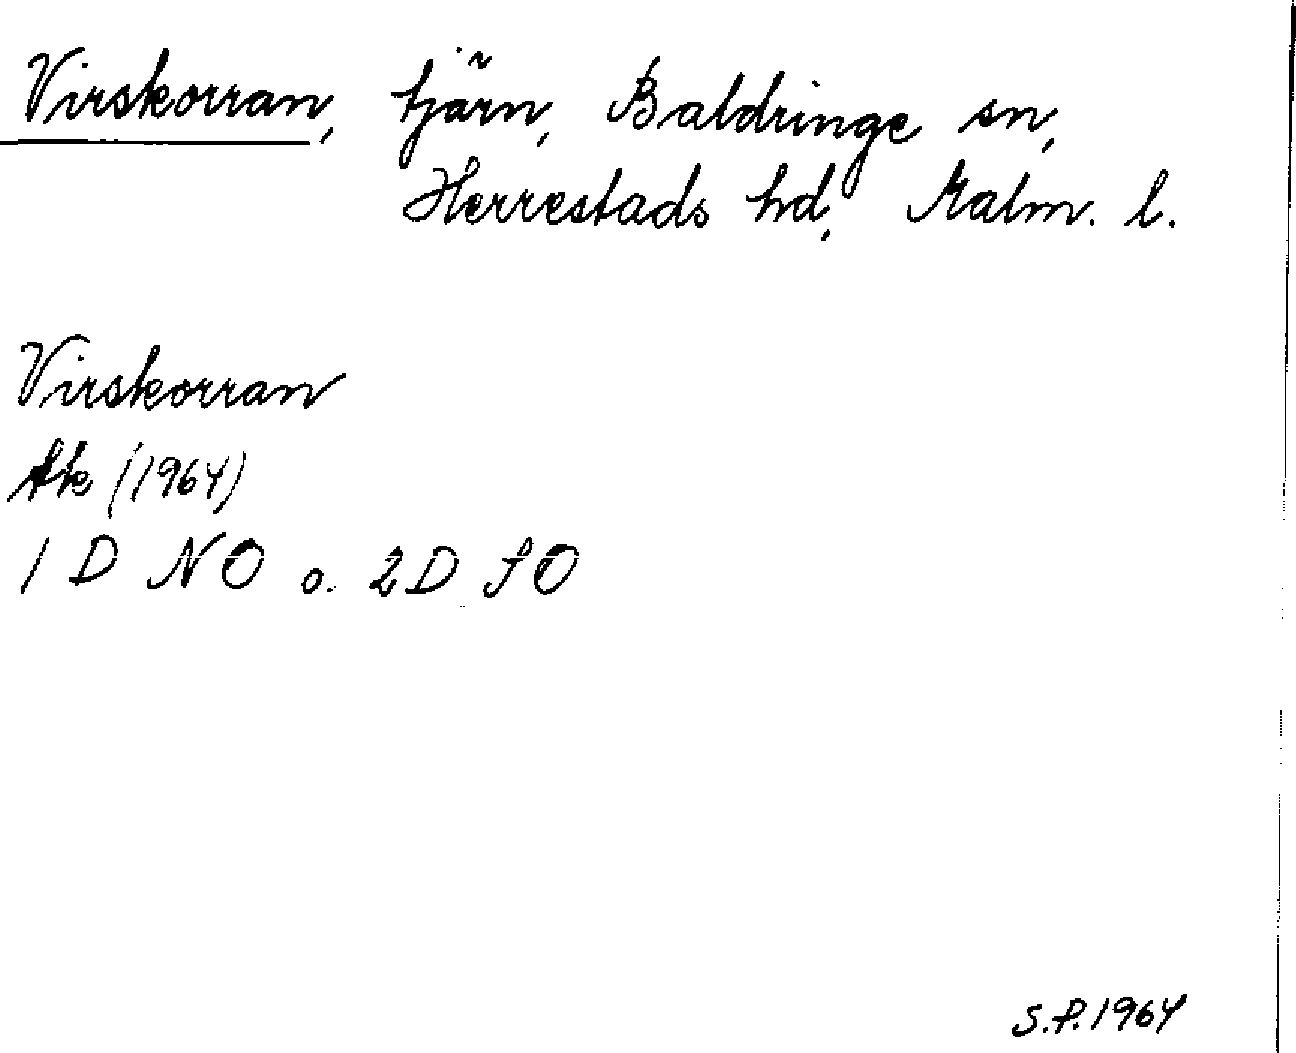 Virskorran, tjärn, Baldringe sn,
Herrestads hd, Malm. l.
Virskorran
Ak (1964)
1 D NO o. 2D SO
S.P. 1964